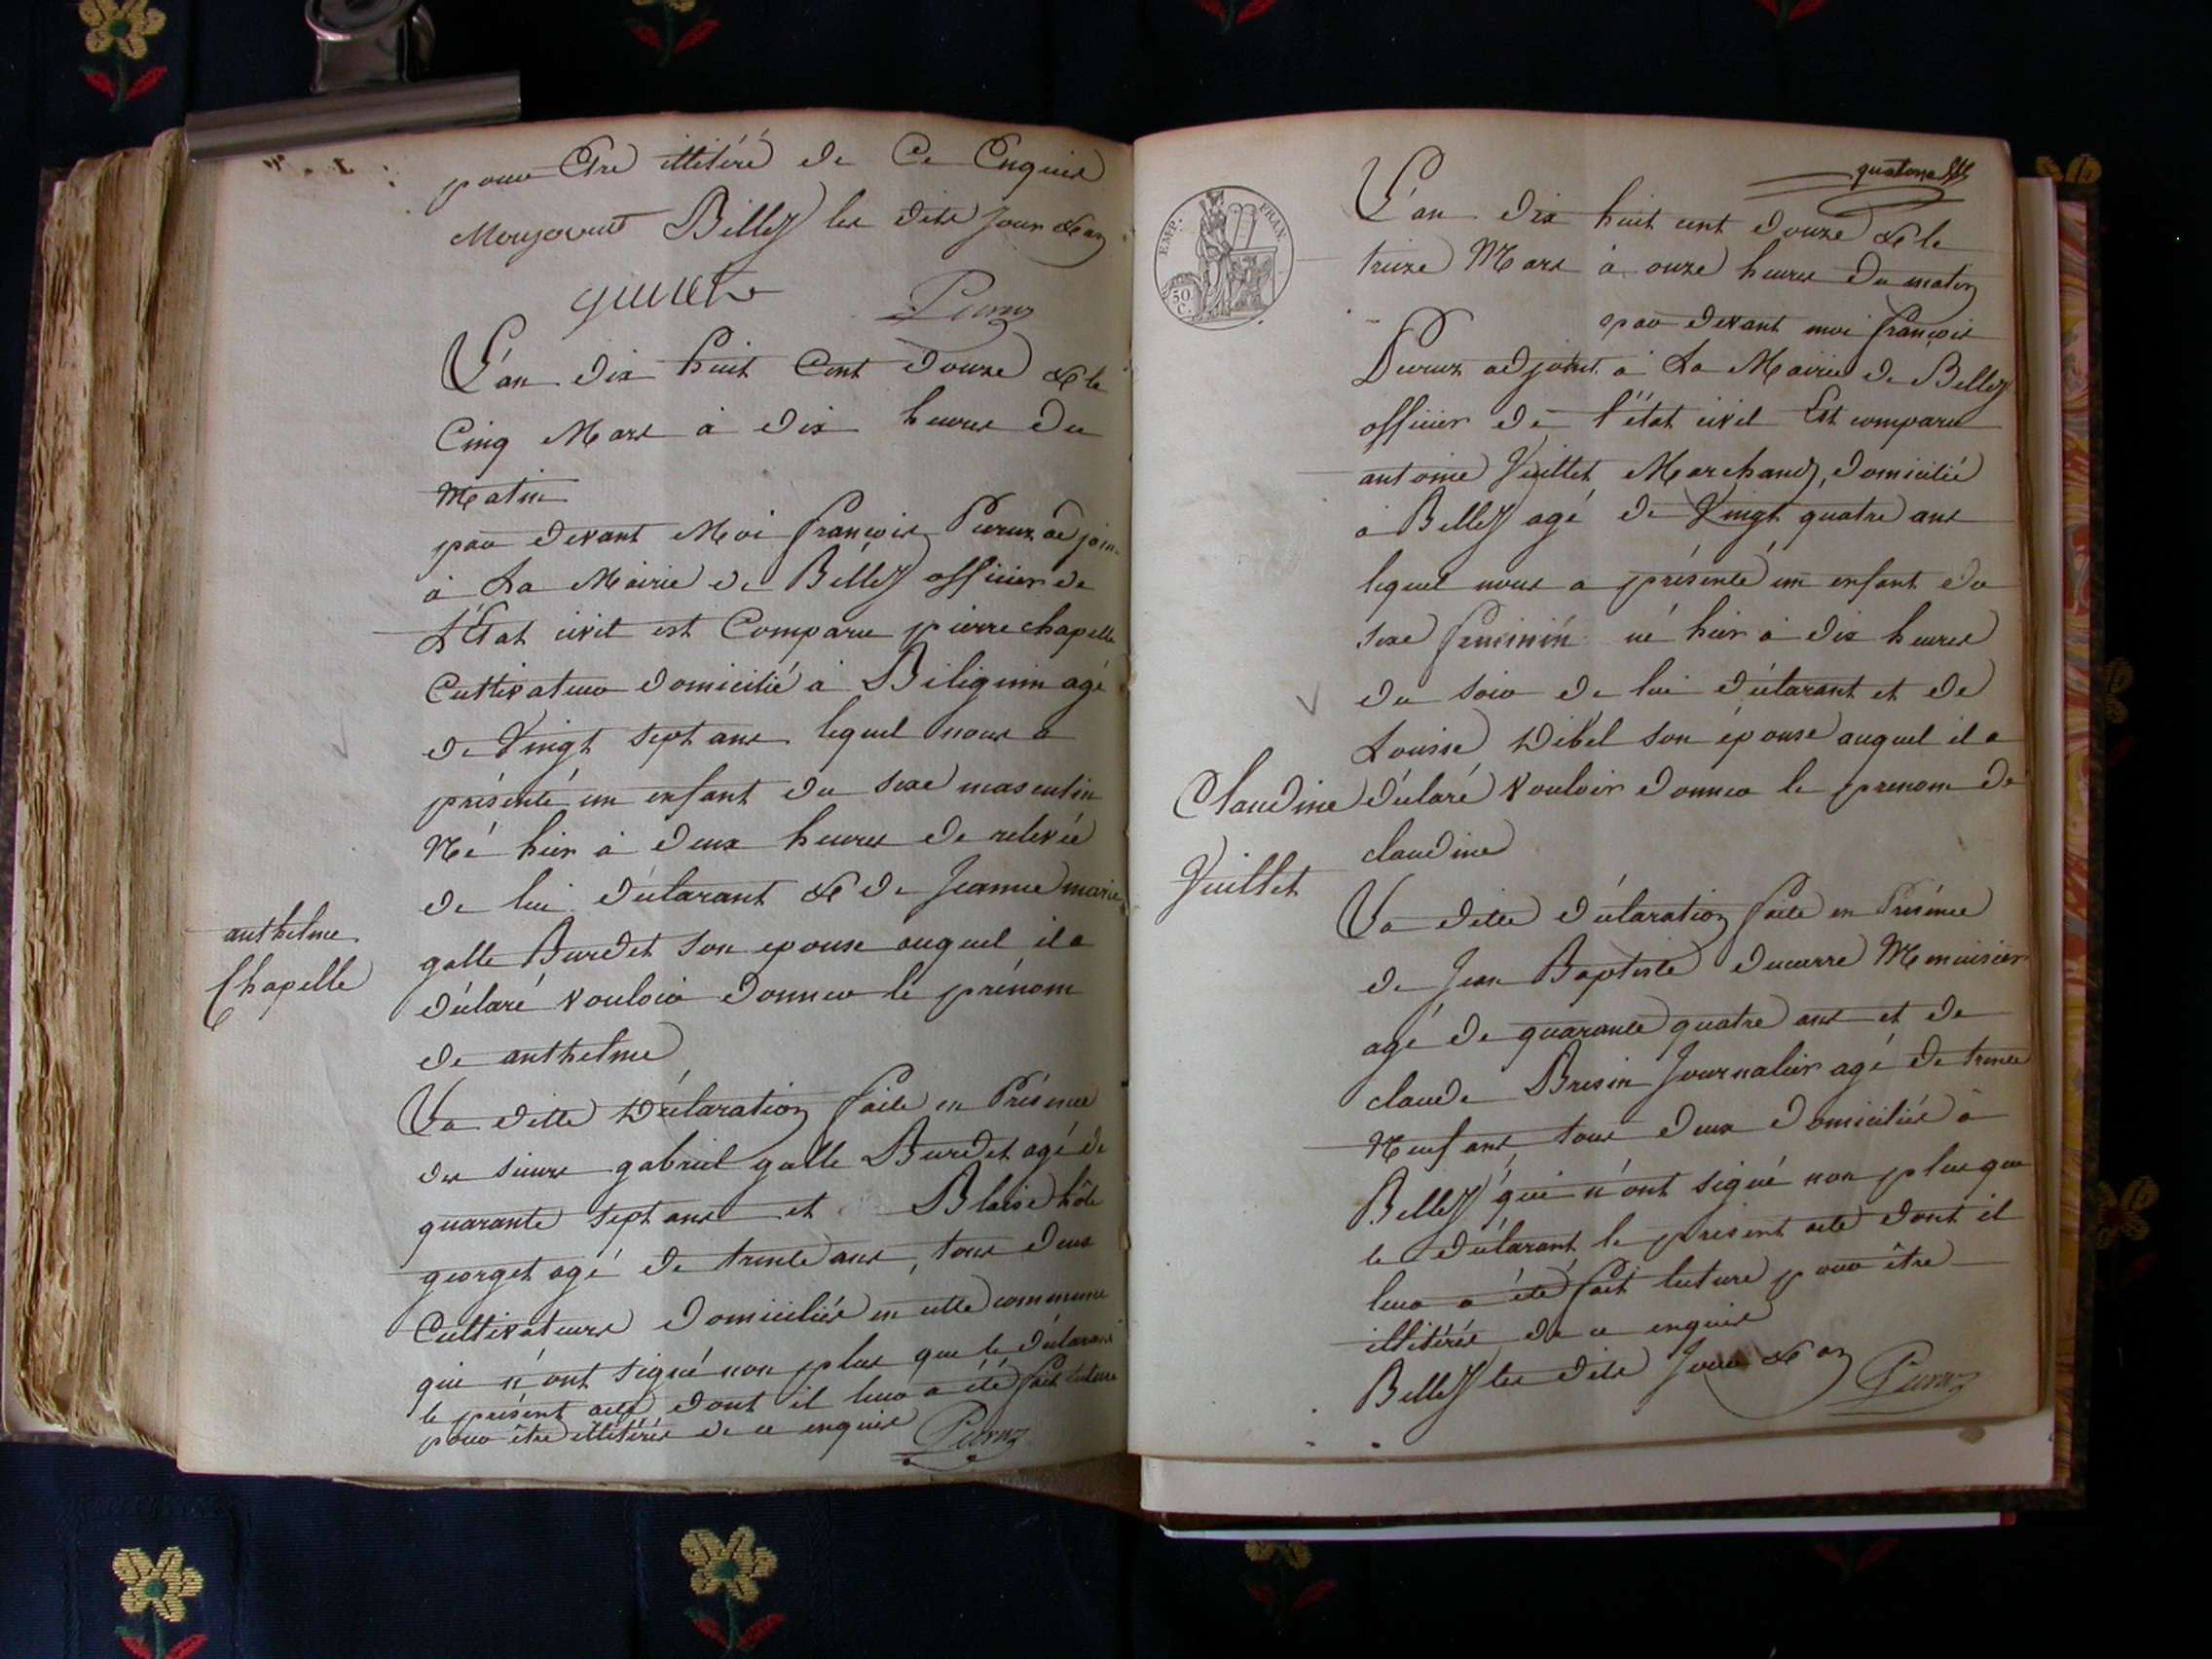 pour Etre illitéré de Ce Enquis
Belley les dits jour & an
L'an dix huit Cent douze & le
Cinq Mars à dix heures du
Matin
par devant Moi françois adjoin
à La Mairie de Belley officier de
L'Etat civil est Comparu pierre chapelle
Cultivateur domicilié à Bilignin agé
de Vingt sept ans lequel nous a
présenté un enfant du sexe masculin
Né hier à deux heures de relevée
de lui déclarant & de Jeanne marie
galle Burdet son epouse auquel il a
déclaré vouloir donner le prénom
de anthelme
anthelme
Chapelle
La ditte Déclaration faite en Présence
des sieurs gabriel galle Burdet agé de
quarante sept ans et Blaise hôte
georget agé de trente ans, tous deux
Cultivateurs domiciliés en cette commune
qui n'ont signé non plus que le déclarant
le présent acte dont il leur a été fait lecture
pour être illitérés de ce enquis
quatorze
EMP. FRAN.
50 C.
L'an dix huit cent douze & le
treize Mars à onze heures du matin
par devant moi françois
adjoint à La Mairie de Belley
officier de l'état civil Est comparu
antoine Vuillet Marchand, domicilié
à Belley agé de Vingt quatre ans
lequel nous a présenté un enfant du
sexe feminin né hier à dix heures
du soir de lui déclarant et de
Louise Débel son épouse auquel il a
déclaré vouloir donner le prenom de
claudine
Claudine
Vuillet
La ditte déclaration faite en Présence
de Jean Baptiste ducurre Menuisier
agé de quarante quatre ans et de
claude Bresin Journalier agé de trente
Neuf ans, tous deux domiciliés à
Belley qui n'ont signé non plus que
le déclarant le présent acte dont il
leur a été fait lecture pour être
illitérés de ce enquis
Belley les dits Jour & an